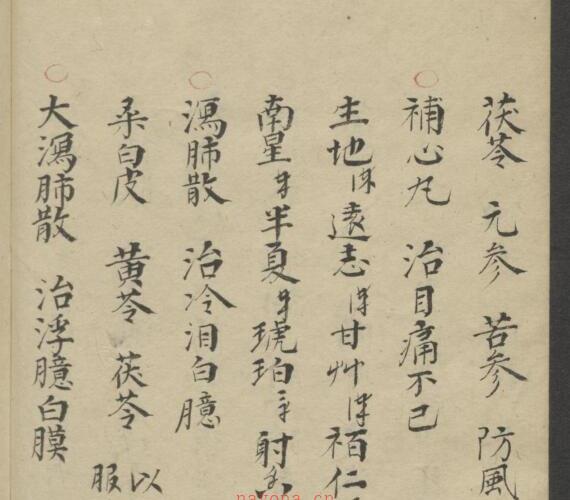 茯苓 元参 苦参 防風
補心丸 治目痛不已
生地 遠志 甘艸 栢仁
南星 半夏 琥珀 射
瀉肺散 治冷泪白臆
桑白皮 黄芩 茯苓 以服
大瀉肺散 治浮臆白膜
nayona.cn